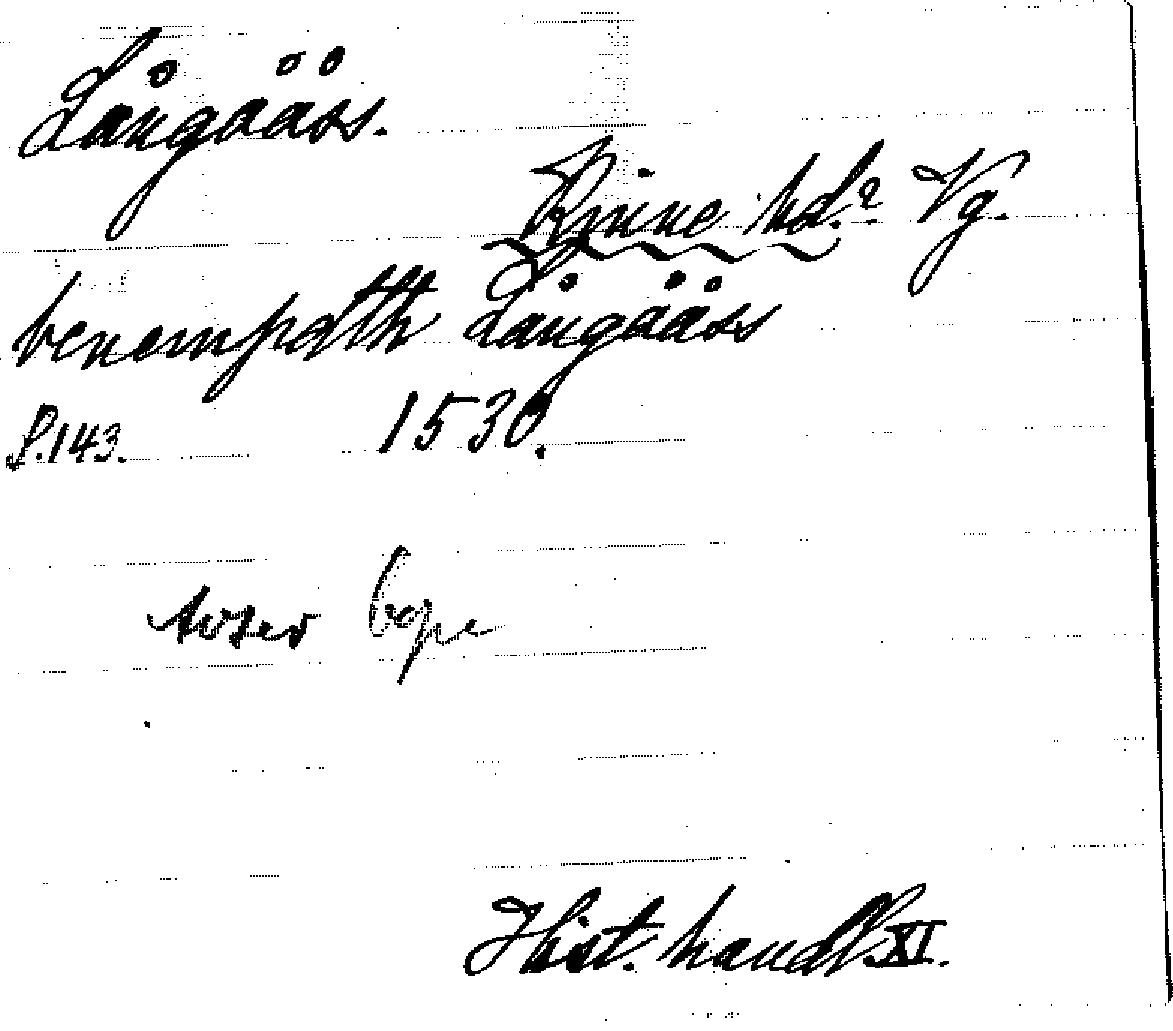 Långååss.
Kinne hd.? Vg.
benempdth Långååss
S.143. 1530.
avser
Hist. handl. XI.